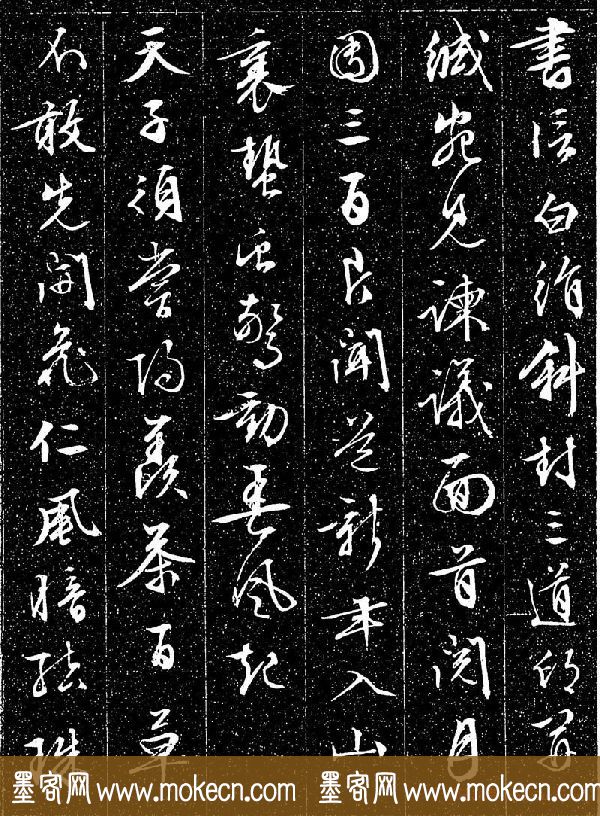 書信白絹斜封三道印開
緘宛見諫議面首閱月
團三百片聞道新年入山
裏蟄虫驚動春風起
天子須嘗陽羨茶百草
不敢先開花仁風暗結珠
墨客网 www.mokecn.com 墨客网 www.mokecn.com